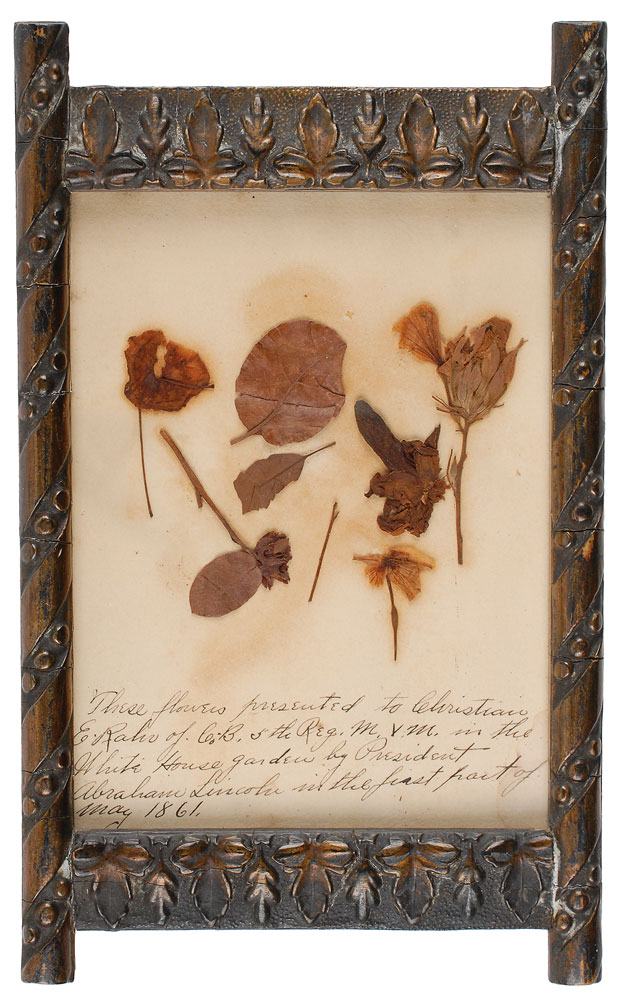 These flowers presented to Christian
E. Rahn of Co. B. 5th Reg. M. V. M. in the
White House garden by President
Abraham Lincoln in the first part of
May 1861.